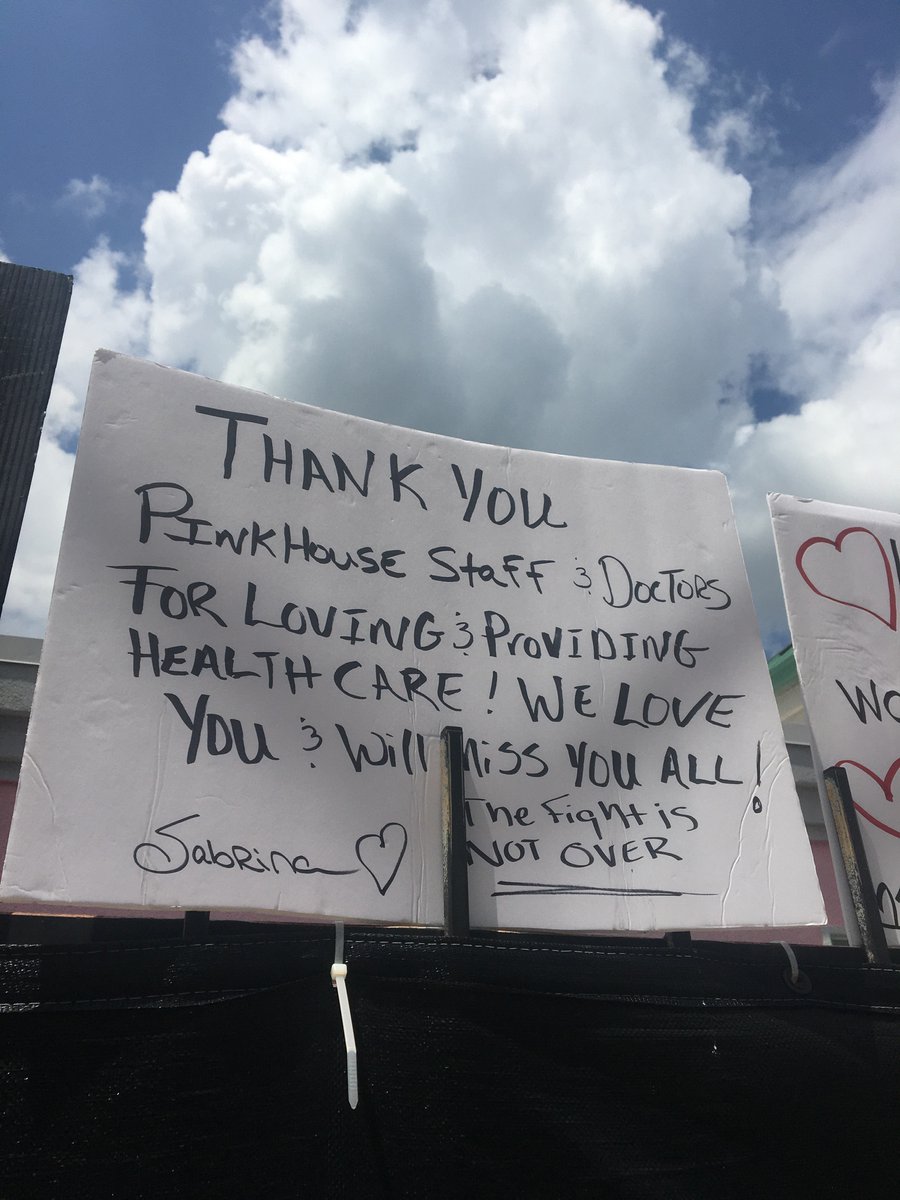 THANK YOU
PINKHOUSE STAFF & DOCTORS
FOR LOVING & PROVIDING
HEALTH CARE! WE LOVE
YOU & WILL MISS YOU ALL!
THE FIGHT IS
NOT OVER
Sabrina